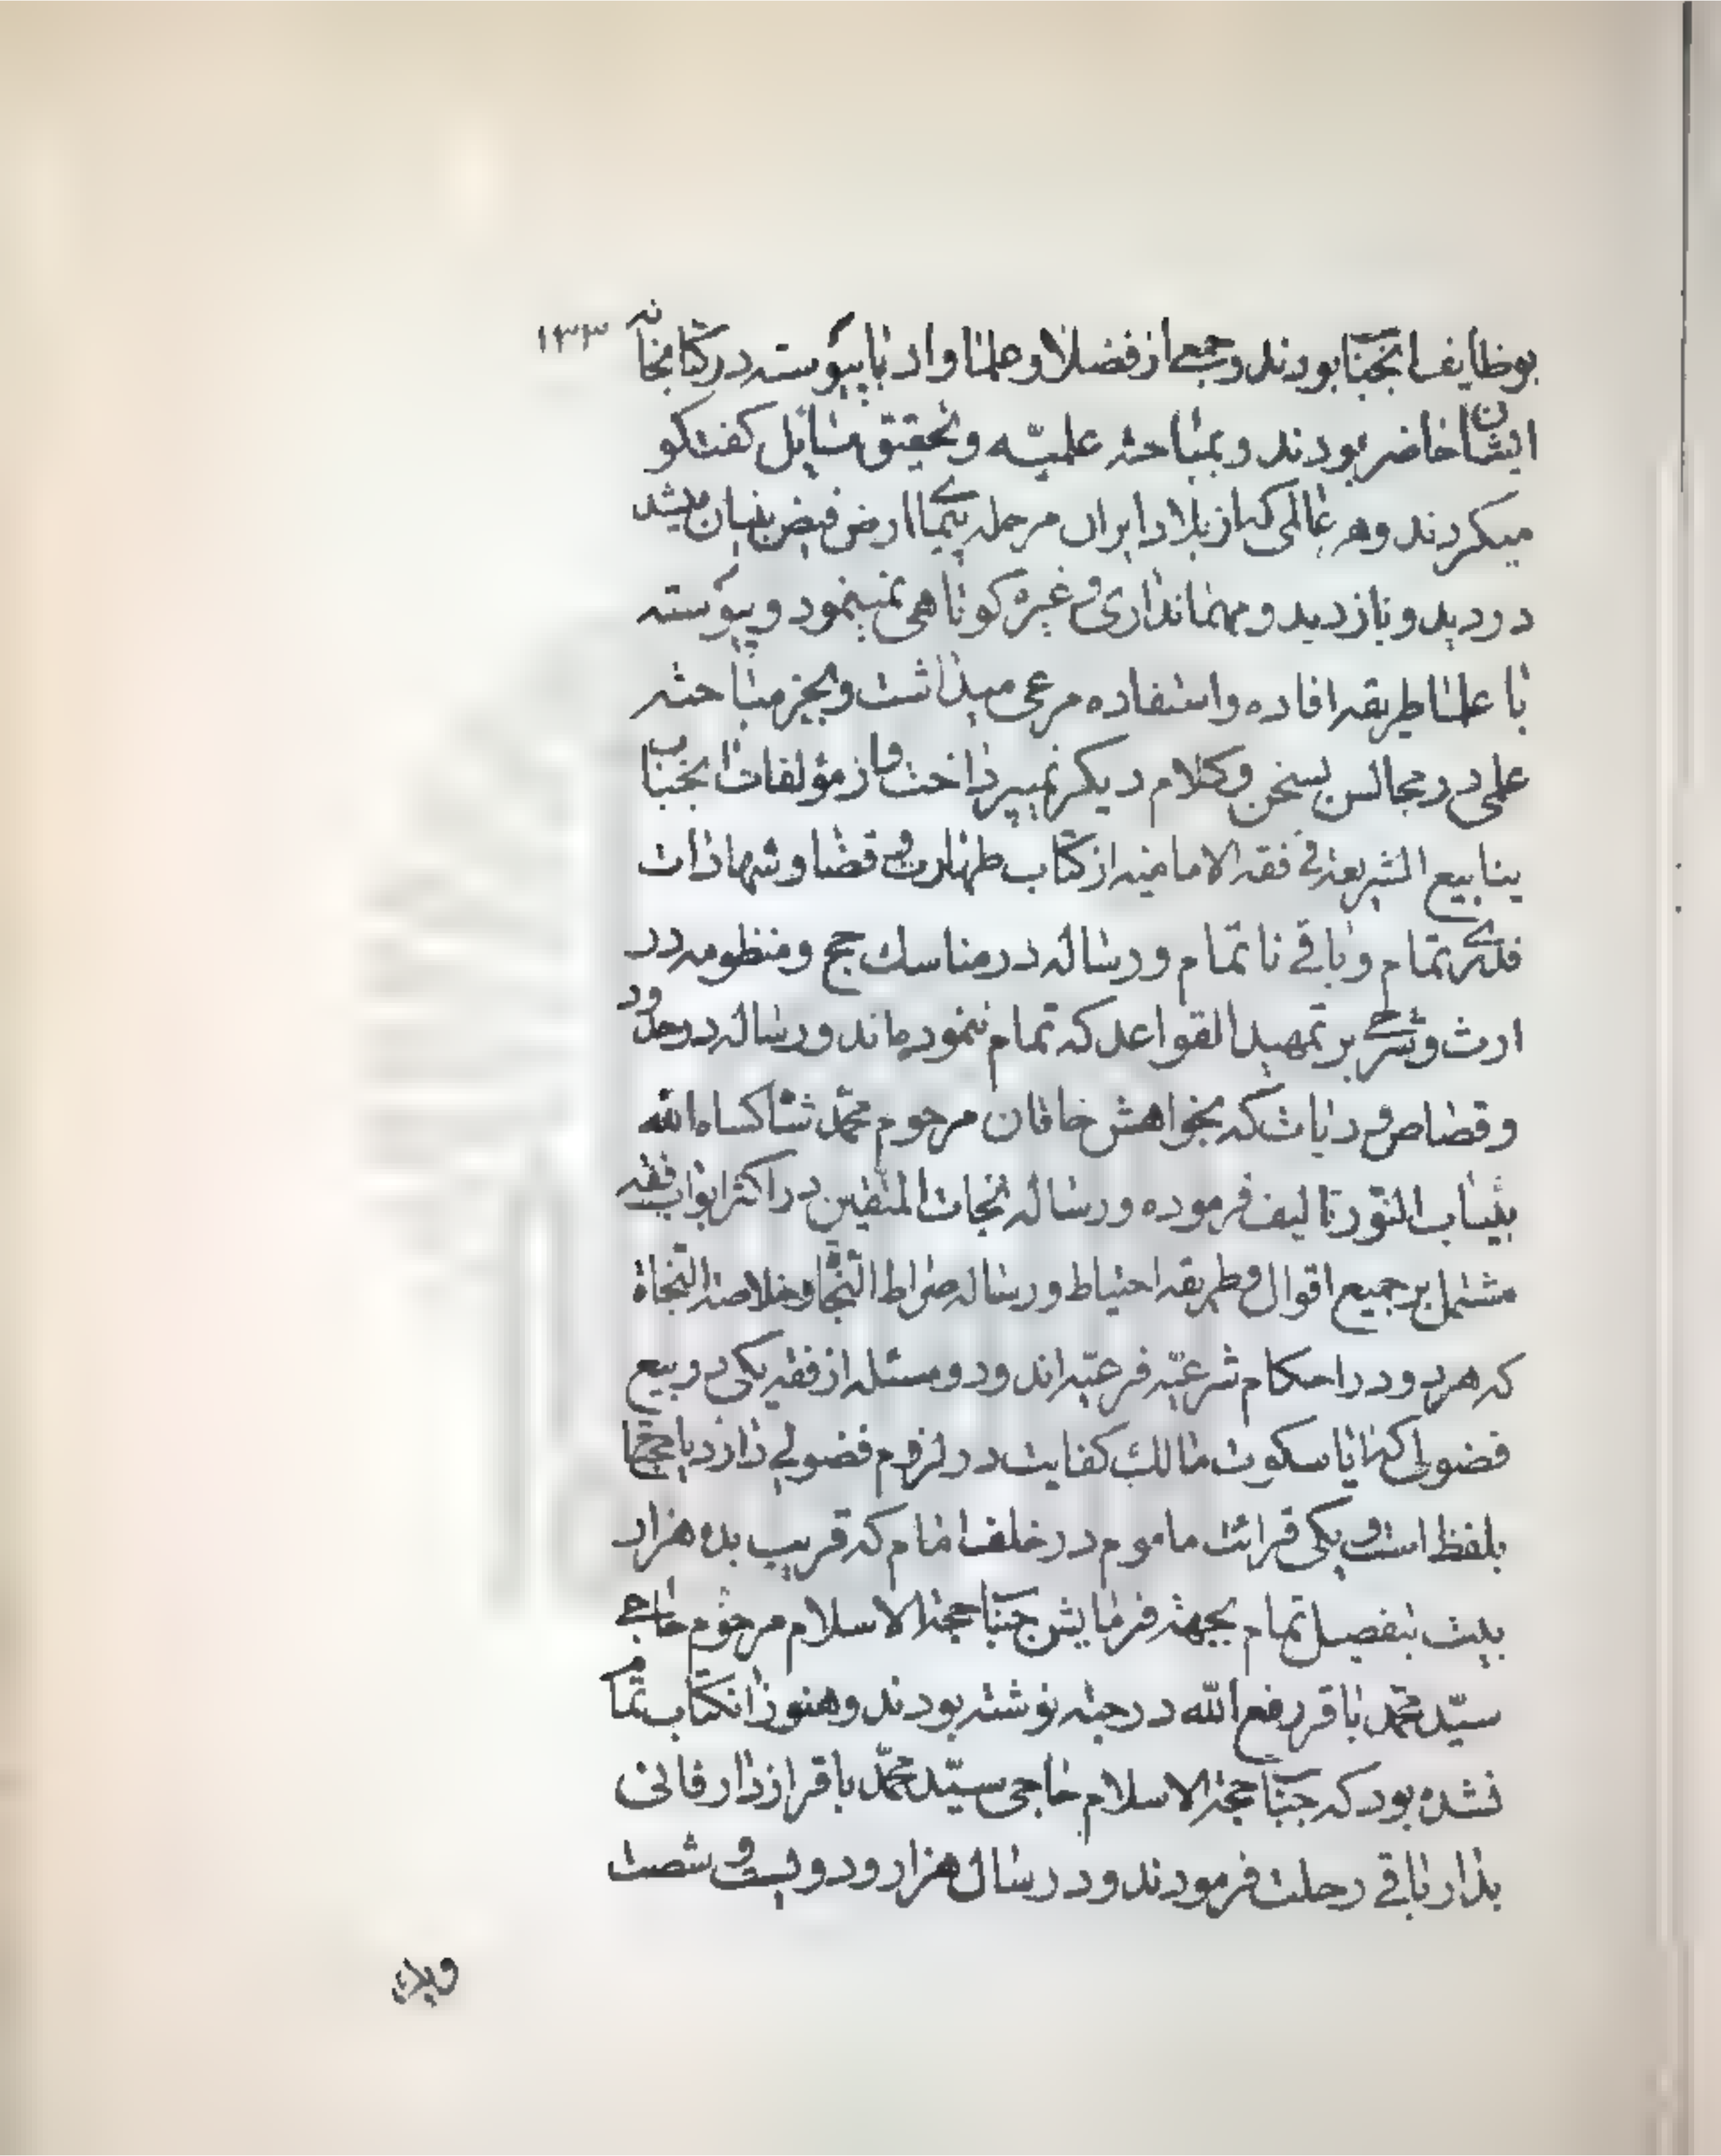 بوظایف انجناب بودند و جمعی از فضلا و علما و ادبا پیوسته در کتابخانه ۱۳۳
ایشان حاضر بودند و بمباحثه علمیّه و تحقیق مسایل کفتکو
میکردند و هر عالمی که از بلاد ایران مرحله پیمای ارض فیض بنیان میشد
در دید و بازدید و مهمانداری و غیره کوتاهی نمینمود و پیوسته
با علما طریقه افاده و استفاده مرعی میداشت و بجز مباحثه
علمی در مجالس بسخن و کلام دیکر نمیپرداخت و از مؤلفات انجناب
ینابیع الشریعة فی فقه الامامیه از کتاب طهارت و قضا و شهادات
فلکی تمام و باقی ناتمام و رساله در مناسك حج و منظومه در
ارث و شرحی بر تمهید القواعد که تمام ننموده ماند و رساله در حدود
و قصاص و دیات که بخواهش خاقان مرحوم محمّد شاه کساه الله
بثیاب النّور تالیف فرموده و رساله نجات المتقین در اکثر ابواب فقه
مشتمل بر جمیع اقوال و طریقه احتیاط و رساله صراط النّجاة و خلاصة النّجاة
که هر دو در احکام شرعیّه فرعیّه اند و دو مسئله از فقه یکی در بیع
فضولی که ایا سکوت مالك کفایت در لزوم فضولی دارد یا محتاج
بلفظ است و یکی قرائت ماموم در خلف امام که قریب بده هزار
بیت بتفصیل تمام بجهة فرمایش جناب حجة الاسلام مرحوم حاجی
سیّد محمّد باقر رفع الله درجته نوشته بودند و هنوز انکتاب تمام
نشده بود که جناب حجة الاسلام حاجی سیّد محمّد باقر از دار فانی
بدار باقی رحلت فرمودند و در سال هزار و دویست و شصت